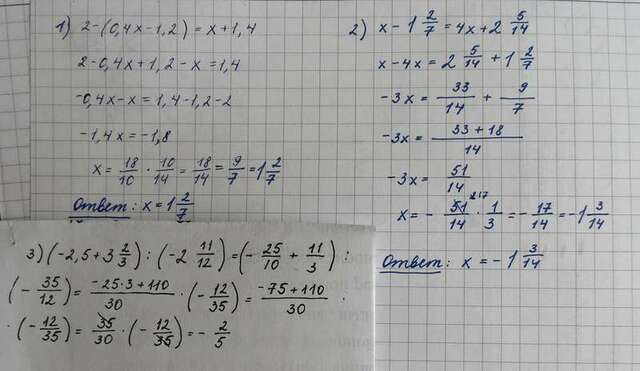 1) 2-(0,4x-1,2)=x+1,4
2-0,4x+1,2-x=1,4
-0,4x-x=1,4-1,2-2
-1,4x=-1,8
x=18/10·10/14=18/14=9/7=1 2/7
Ответ: x=1 2/7
2) x-1 2/7=4x+2 5/14
x-4x=2 5/14+1 2/7
-3x=33/14+9/7
-3x=33+18/14
-3x=51/14
x=-51/14·1/3=-17/14=-1 3/14
Ответ: x=-1 3/14
3)(-2,5+3 2/3):(-2 11/12)=(-25/10+11/3):
(-35/12)=-25·3+110/30·(-12/35)=-75+110/30·
·(-12/35)=35/30·(-12/35)=-2/5